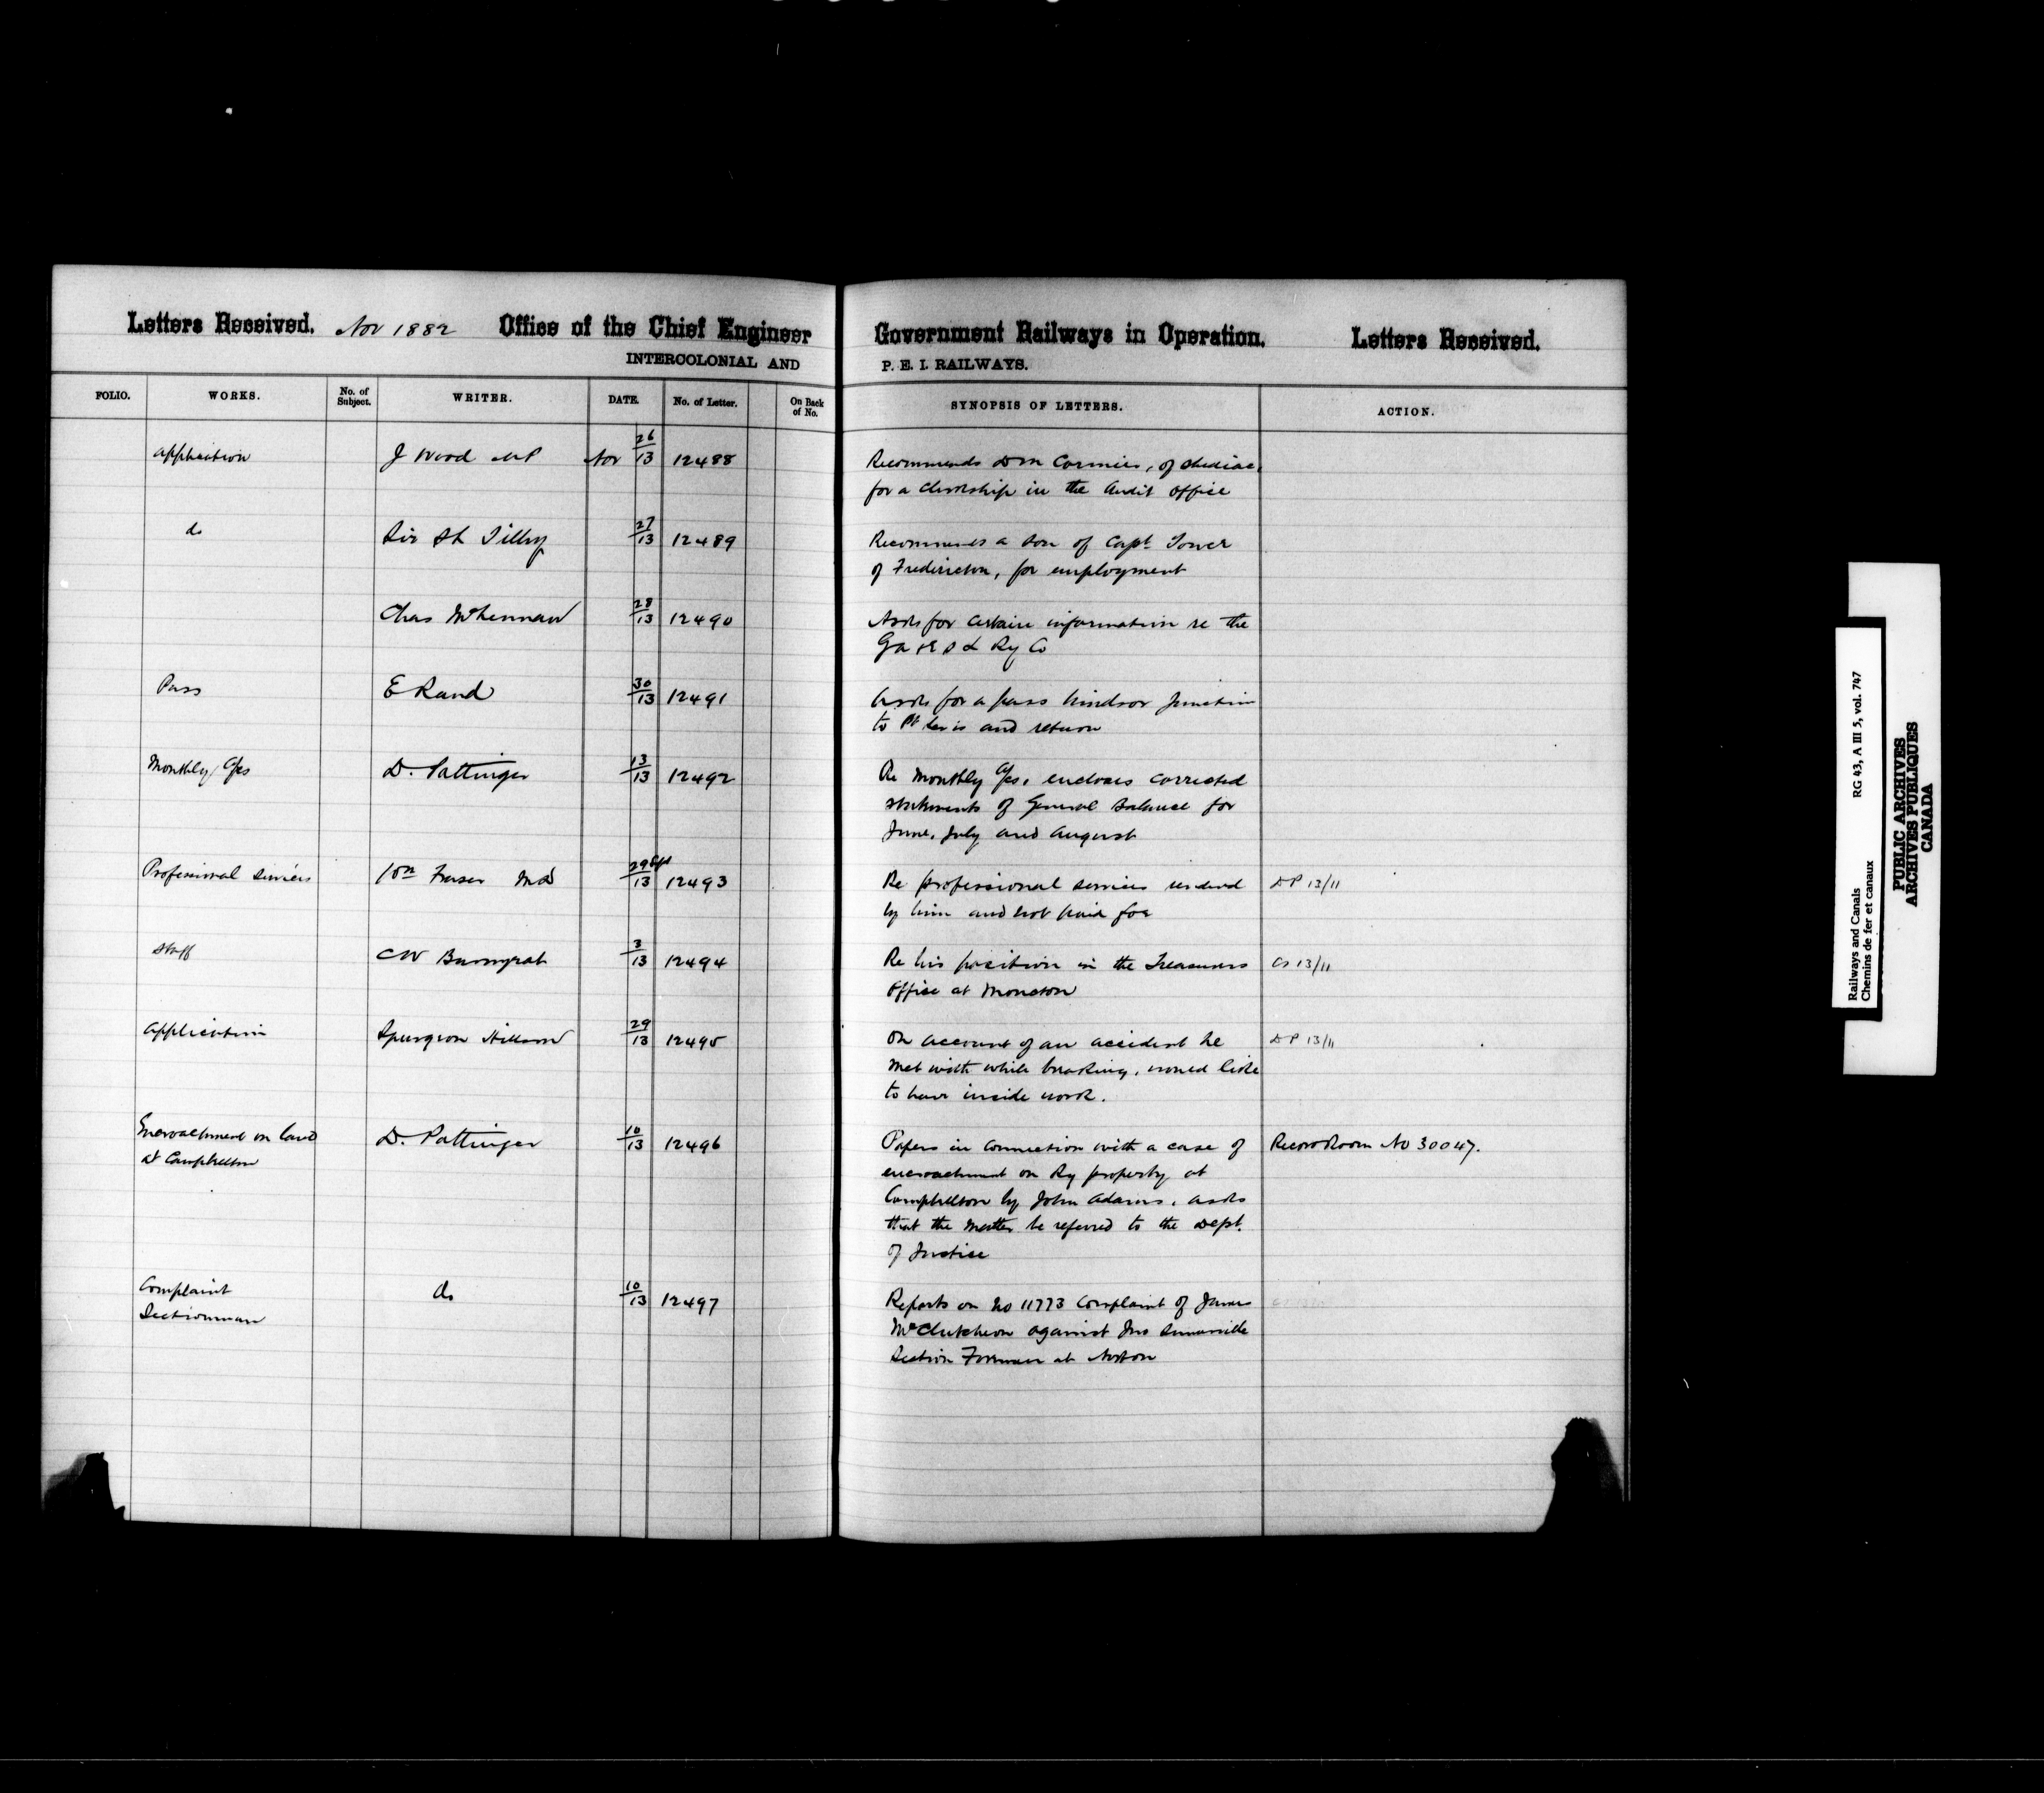 Letters Received. Nov 1882 Office of the Chief Engineer Government Railways in Operation. Letters Received.
INTERCOLONIAL AND P. E. I. RAILWAYS.
FOLIO. WORKS. No. of Subject. WRITER. DATE. No. of Letter. On Back of No. SYNOPSIS OF LETTERS. ACTION.
Application J Wood MP Nov 26/13 12488 Recommends D M Cormier, of Shediac,
for a clerkship in the Audit Office
do Sir S L Tilley 27/13 12489 Recommends a son of Capt Tower
of Fredericton, for employment
Chas McKennan 28/13 12490 Asks for certain information re the
Ry Co
Pass E Rand 30/13 12491 Asks for a pass Windsor Junction
to Pt Levis and return
Monthly a/cs D. Pottinger 13/13 12492 Re Monthly a/cs, encloses corrected
statements of General Balance for
June, July and August
Professional Services Fraser MD 29 Sept/13 12493 Re professional services rendered DP 13/11
by him and not paid for
Staff C W 3/13 12494 Re his position in the Treasurers CS 13/11
Office at Moncton
Application Spurgeon 29/13 12495 On account of an accident he DP 13/11
met with while braking, would like
to have inside work.
Encroachment on land D. Pottinger 10/13 12496 Papers in connection with a case of Record Room No 30047.
at Campbellton encroachment on Ry property at
Campbellton by John Adams, asks
that the matter be referred to the Dept.
of Justice
Complaint do 10/13 12497 Reports on No 11773 Complaint of James
Sectionman McCutcheon against Jno
Section Foreman at Norton
Railways and Canals RG 43, A III 5, vol. 747
Chemins de fer et canaux
PUBLIC ARCHIVES
ARCHIVES PUBLIQUES
CANADA